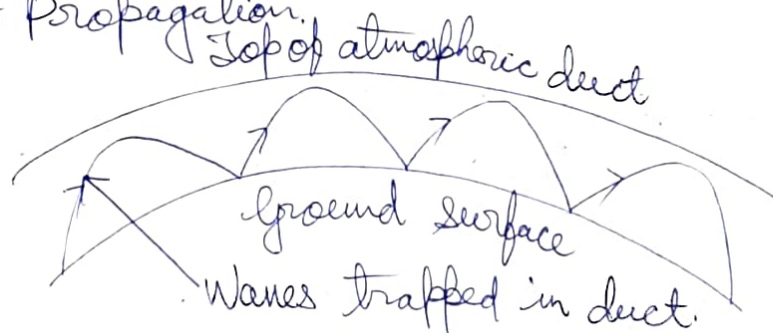 Propagation.
Top of atmospheric duct
Ground surface
Waves trapped in duct.